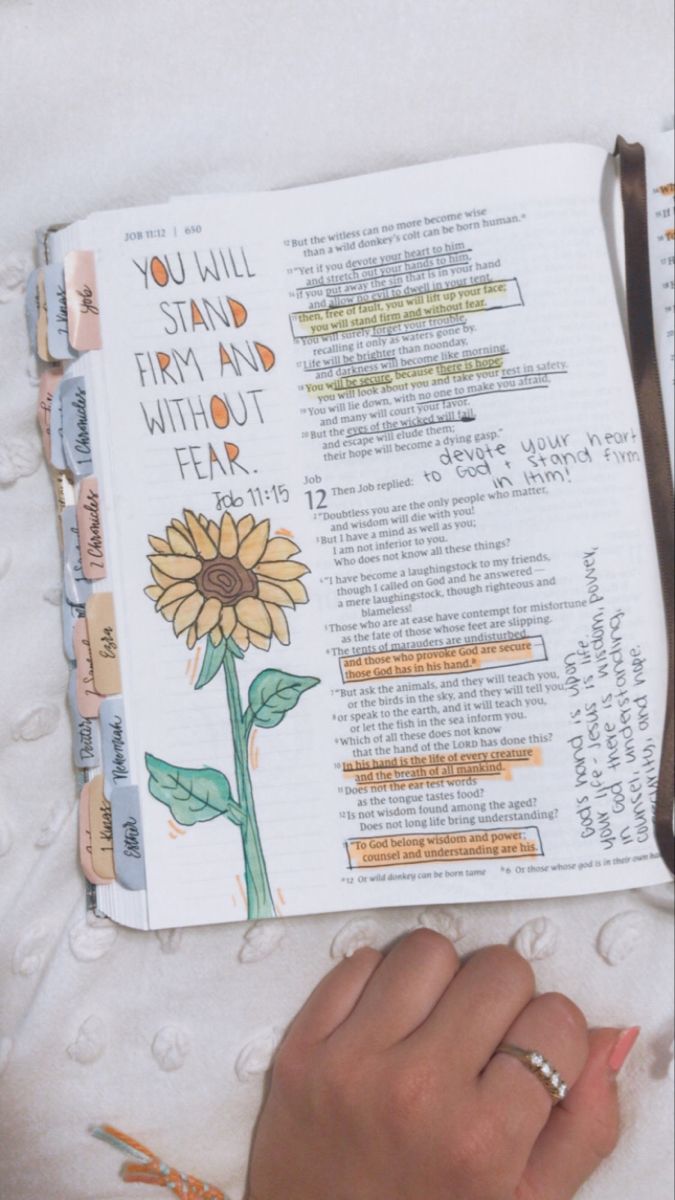 JOB 11:12 | 650
YOU WILL
STAND
FIRM AND
WITHOUT
FEAR.
Job 11:15
12 But the witless can no more become wise
than a wild donkey's colt can be born human.a
13 "Yet if you devote your heart to him
and stretch out your hands to him,
14 if you put away the sin that is in your hand
and allow no evil to dwell in your tent,
15 then, free of fault, you will lift up your face;
you will stand firm and without fear.
16 You will surely forget your trouble,
recalling it only as waters gone by.
17 Life will be brighter than noonday,
and darkness will become like morning.
18 You will be secure, because there is hope;
you will look about you and take your rest in safety.
19 You will lie down, with no one to make you afraid,
and many will court your favor.
20 But the eyes of the wicked will fail,
and escape will elude them;
their hope will become a dying gasp."
devote your heart
to God + stand firm
in Him!
Job
12 Then Job replied:
2 "Doubtless you are the only people who matter,
and wisdom will die with you!
3 But I have a mind as well as you;
I am not inferior to you.
Who does not know all these things?
4 "I have become a laughingstock to my friends,
though I called on God and he answered—
a mere laughingstock, though righteous and
blameless!
5 Those who are at ease have contempt for misfortune
as the fate of those whose feet are slipping.
6 The tents of marauders are undisturbed,
and those who provoke God are secure—
those God has in his hand.b
7 "But ask the animals, and they will teach you,
or the birds in the sky, and they will tell you;
8 or speak to the earth, and it will teach you,
or let the fish in the sea inform you.
9 Which of all these does not know
that the hand of the LORD has done this?
10 In his hand is the life of every creature
and the breath of all mankind.
11 Does not the ear test words
as the tongue tastes food?
12 Is not wisdom found among the aged?
Does not long life bring understanding?
13 "To God belong wisdom and power;
counsel and understanding are his.
a12 Or wild donkey can be born tame b6 Or those whose god is in their own
God's hand is upon
your life - Jesus is life.
in God there is wisdom, power,
counsel, understanding,
security, and hope.
Job
2 Kings
1 Chronicles
2 Chronicles
Ezra
2 Samuel
Nehemiah
1 Kings
Esther